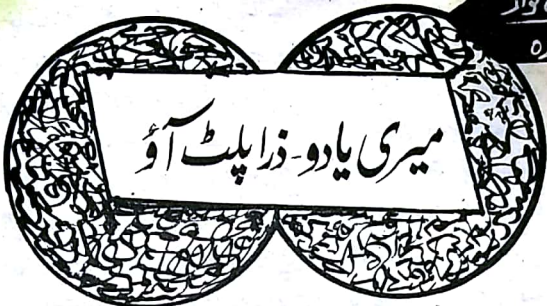 میری یادو۔ ذرا پلٹ آؤ